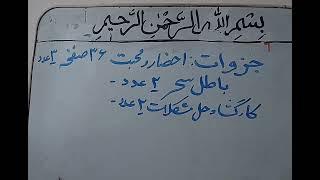 بسم الله الرحمن الرحيم
جزوات: احضار و محبت ۳۶ صفحه ۳ عدد
باطل سحر ۲ عدد -
کارگشا و حل مشکلات ۲ عدد -